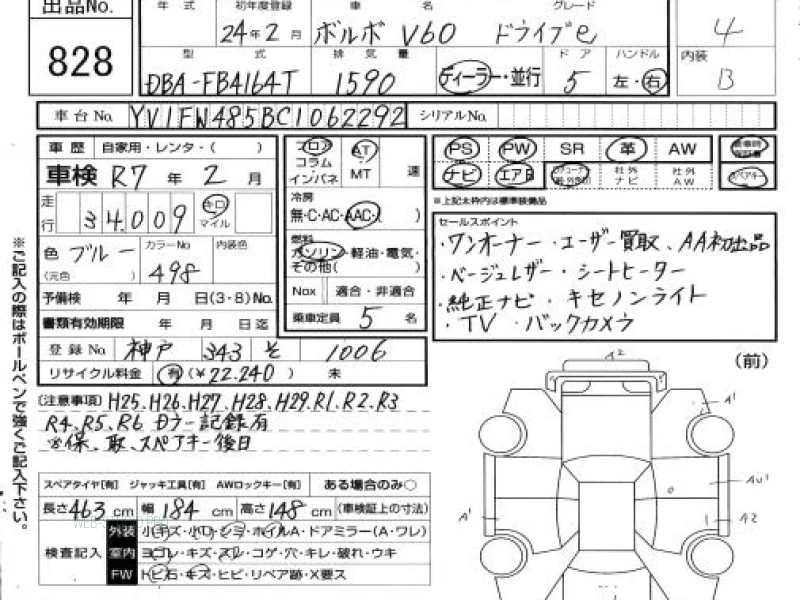 出品No. 年式 初年度登録 車名 グレード
828 24年2月 ボルボ V60 ドライブe 4
型式 排気量 ドア ハンドル 内装
DBA-FB4164T 1590 ディーラー・並行 5 左・右 B
車台No. YV1FW485BC1062292 シリアルNo.
車歴 自家用・レンタ・( )
車検 R7年2月
走行 34,009 キロ マイル
色 ブルー カラーNo 498 内装色
(元色)
予備検 年 月 日(3・8)No.
書類有効期限 年 月 日迄
登録No. 神戸 343 そ 1006
リサイクル料金 有(¥22.240) 未
フロア コラム インパネ AT MT 速
冷房
無・C・AC・AAC・( )
燃料
ガソリン・軽油・電気・
その他( )
Nox 適合・非適合
乗車定員 5 名
PS PW SR 革 AW
ナビ エアB 社外ナビ 社外AW スペアキー
※上記太枠内は標準装備品
セールスポイント
・ワンオーナー・ユーザー買取、AA初出品
・ベージュレザー・シートヒーター
・純正ナビ・キセノンライト
・TV・バックカメラ
[注意事項] H25.H26.H27.H28.H29.R1.R2.R3
R4.R5.R6 Dラー記録有
※保、取、スペアキー後日
スペアタイヤ[有] ジャッキ工具[有] AWロックキー[有] ある場合のみ○
長さ463cm 幅184cm 高さ148cm (車検証上の寸法)
検査記入
外装 小キズ・小凹・シミ・ホイルA・ドアミラー(A・ワレ)
室内 ヨゴレ・キズ・スレ・コゲ・穴・キレ・破れ・ウキ
FW トビ石・キズ・ヒビ・リペア跡・X要ス
※ご記入の際はボールペンで強くご記入下さい。
(前)
A2
A'
AU'
A'
A2